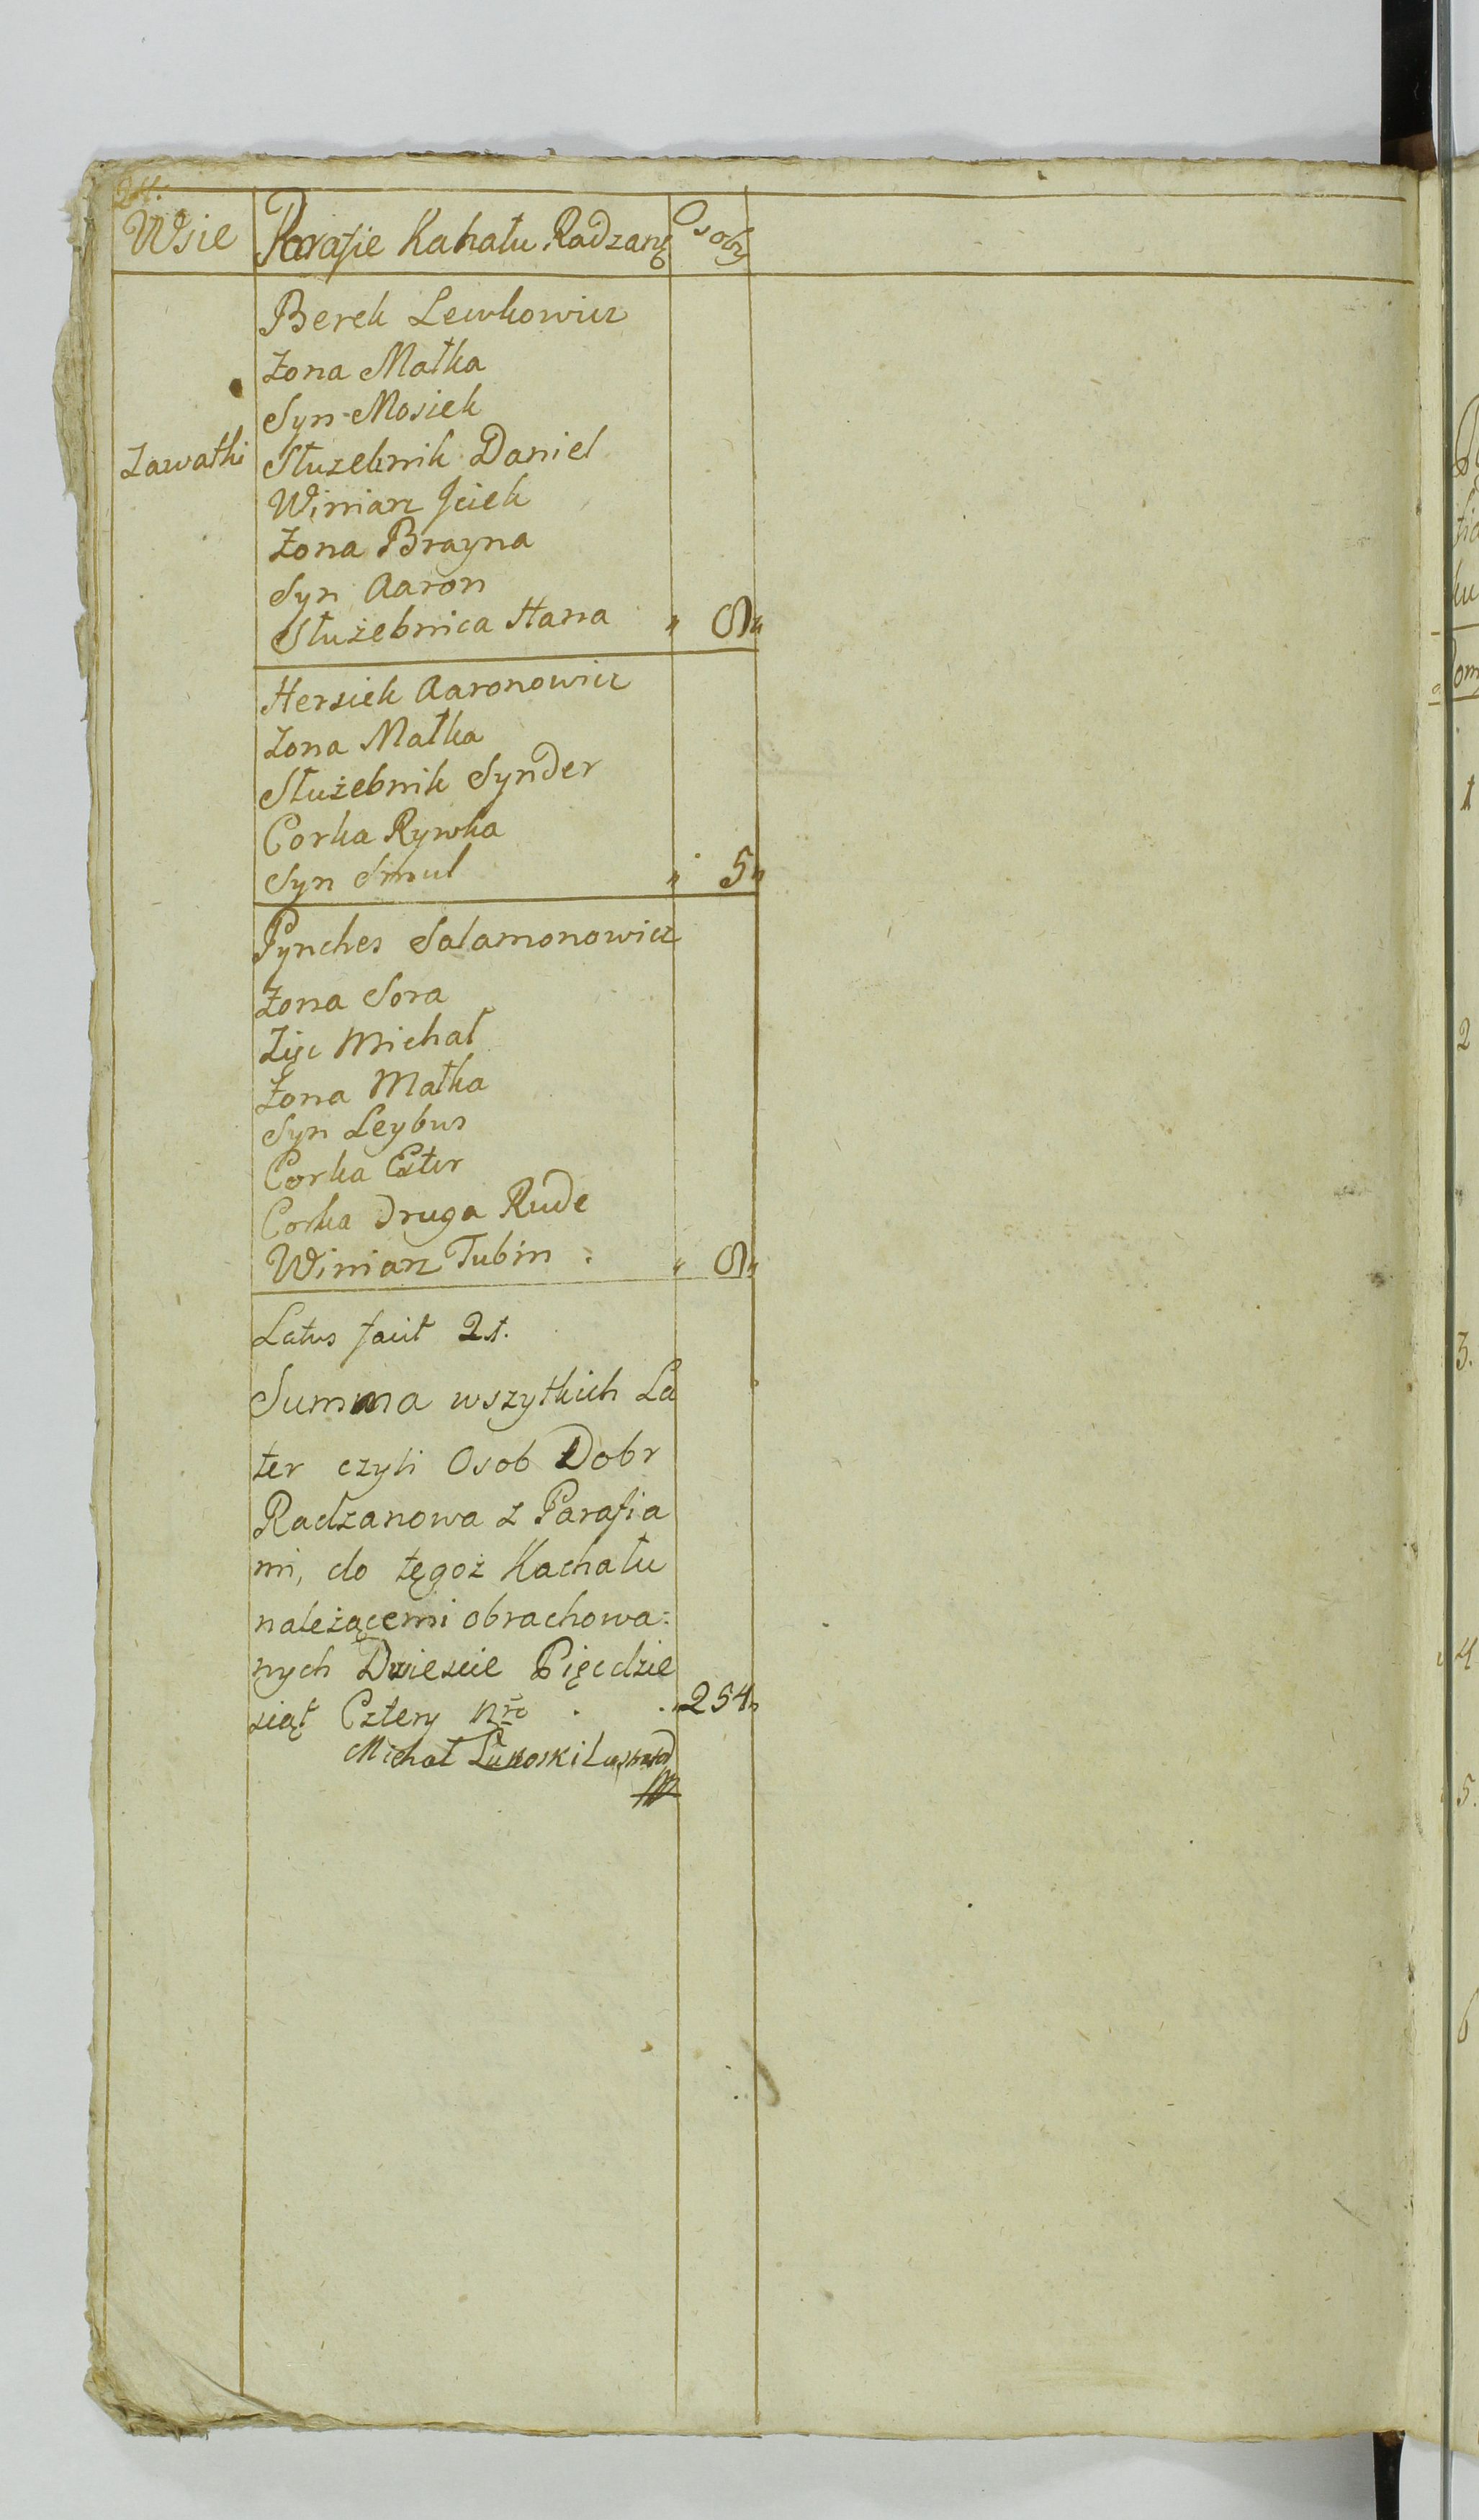 24.
Wsie Parafie Kahału Radzanę Osoby
Berek Lewkowicz
Żona Małka
Syn Mosiek
Zawatki Służebnik Daniel
Winiarz Jciek
Żona Brayna
Syn Aaron
Służebnica Hana " 8 "
Hersiek Aaronowicz
Żona Małka
Służebnik Synder
Corka Rywka
Syn Smul " 5 "
Pynches Salamonowicz
Żona Sora
Zięc Michał
Żona Małka
Syn Leybus
Corka Ester
Corka Druga Rude
Winiarz Tubin " 8 "
Latus facit 21.
Summa wszytkich La
ter czyli Osob Dobr
Radzanowa z Parafia
mi, do tęgoż Kachału
należącemi obrachowa:
nych Dwiescie Pięcdzie
siąt Cztery nro . . " 254 "
Michał
1
2
3.
4
5.
6